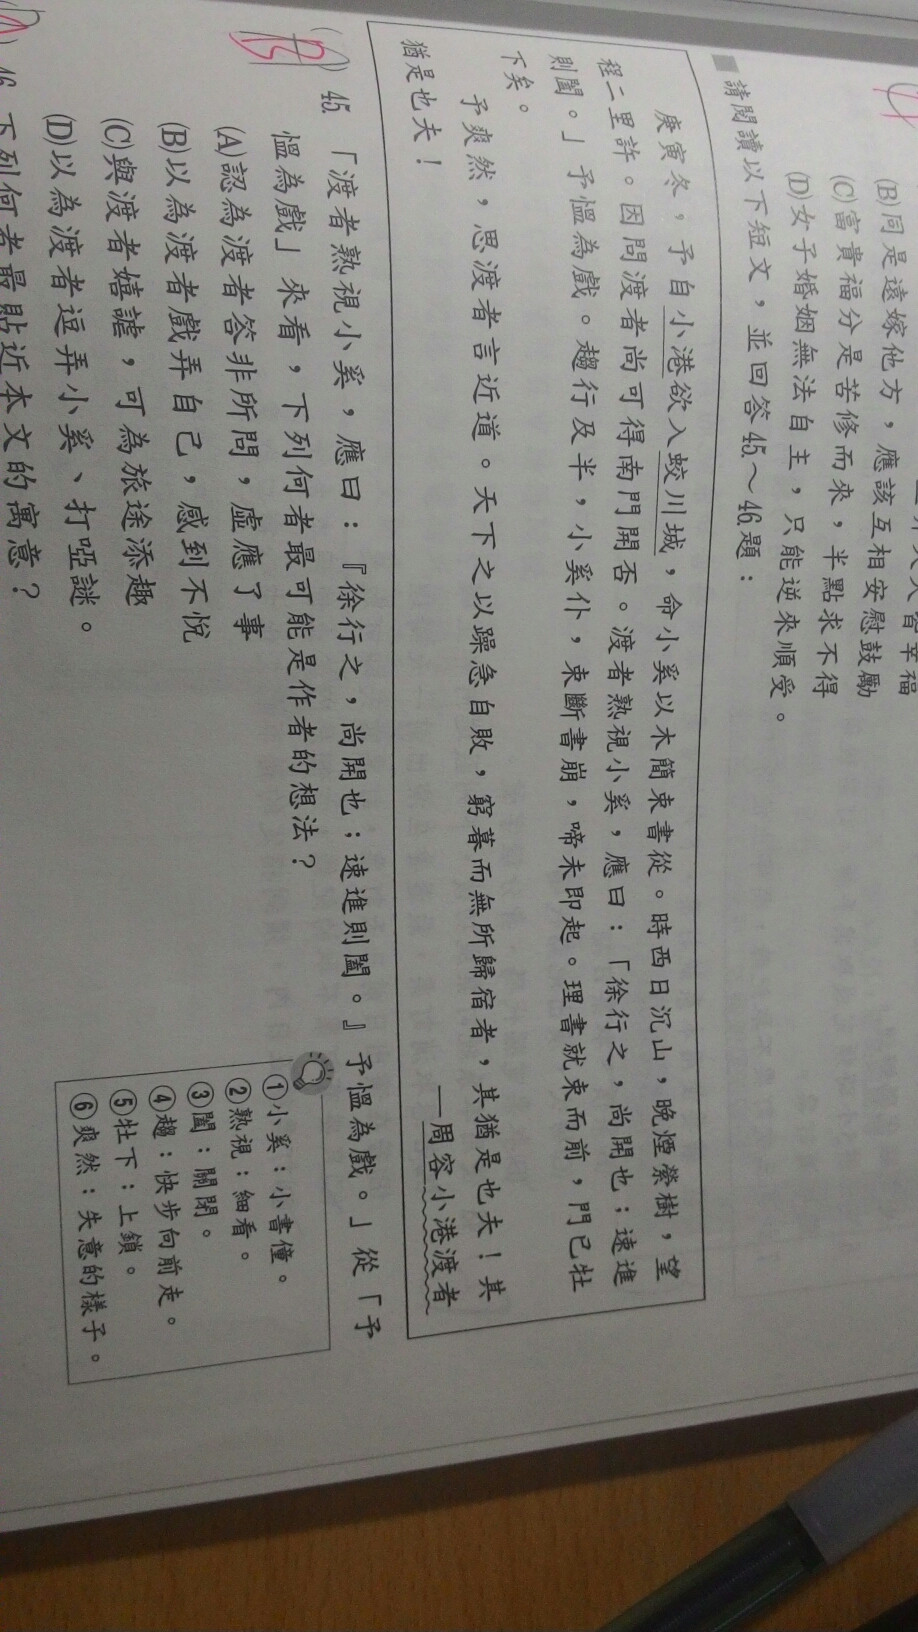 (B)同是遠嫁他方，應該互相安慰鼓勵
(C)富貴福分是苦修而來，半點求不得
(D)女子婚姻無法自主，只能逆來順受。
■請閱讀以下短文，並回答45.～46.題：
庚寅冬，予自小港欲入蛟川城，命小奚以木簡束書從。時西日沉山，晚煙縈樹，望
程二里許。因問渡者尚可得南門開否。渡者熟視小奚，應曰：「徐行之，尚開也；速進
則闔。」予慍為戲。趨行及半，小奚仆，束斷書崩，啼未即起。理書就束而前，門已牡
下矣。
予爽然，思渡者言近道。天下之以躁急自敗，窮暮而無所歸宿者，其猶是也夫！其
猶是也夫！
—周容小港渡者
45.「渡者熟視小奚，應曰：『徐行之，尚開也；速進則闔。』予慍為戲。」從「予
慍為戲」來看，下列何者最可能是作者的想法？
(A)認為渡者答非所問，虛應了事
(B)以為渡者戲弄自己，感到不悅
(C)與渡者嬉謔，可為旅途添趣
(D)以為渡者逗弄小奚、打啞謎。
①小奚：小書僮。
②熟視：細看。
③闔：關閉。
④趨：快步向前走。
⑤牡下：上鎖。
⑥爽然：失意的樣子。
46.下列何者最貼近本文的寓意？